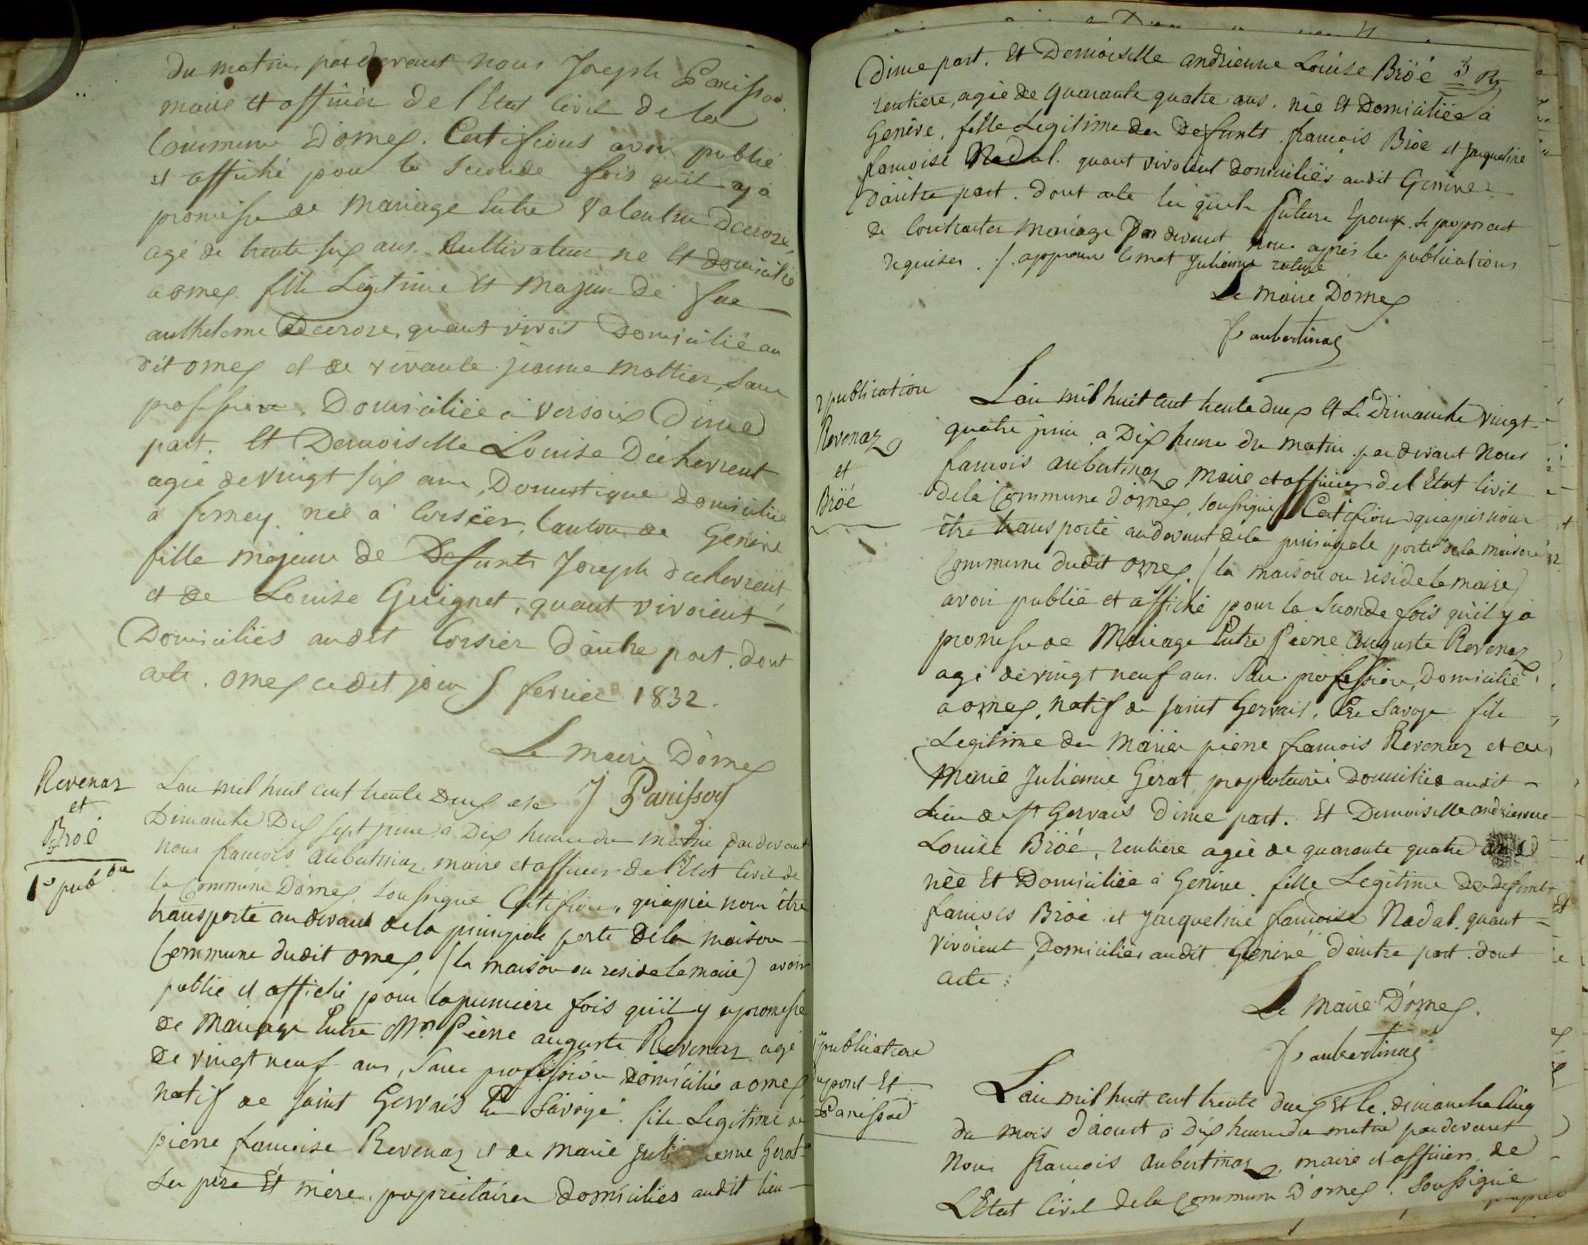 du matin pardevant nous Joseph Panissod
maire et officier de l'Etat Civil de la
Commune D'ornex. Certifions avoir publié
et affiché pour la seconde fois qu'il y a
promesse de Mariage Entre Valentin Decroze,
agé de trente six ans. Cultivateur né Et domicilié
a ornex. fils Légitime Et Majeur de feu
anthelème Decroze, quant vivoit Domicilié au
dit ornex et de vivante jeanne Mottier, sans
profession, Domiciliée à Versoix D'une
part. Et Demoiselle Louise Dechevrent
agée de vingt six ans, Domestique domiciliée
à ferney. née à Corsier, Canton de Genève
fille majeure de Defunts Joseph dechevrent,
et de Louise Guignet, quant vivoient
Domiciliés audit Corsier d'autre part. dont
acte. ornex ce dit jour 5 fevrier 1832.
Le Maire D'ornex
J Panissod
Revenaz
et
Broé
1re pub on
L'an mil huit cent trente deux et le
Dimanche Dix sept juin à Dix heures du matin pardevant
nous françois aubertinaz, maire et officier de l'Etat Civil de
la Commune D'ornex, soussigné Certifions, qu'après nous être
transporté au devant de la principale porte De la maison
Commune dudit ornex, (la maison ou reside le maire) avoir
publié et affiché pour la première fois qu'il y a promesse
de Mariage Entre Mr. Pierre auguste Revenaz agé
de vingt neuf ans, sans profession domicilié a ornex,
natif de saint Gervais En Savoye. fils Legitime de
pierre françoise Revenaz et de marie Julienne Gerat
ses père Et mère, propriétaires domiciliés audit lieu
D'une part. Et Demoiselle andrienne Louise Bröé
rentiere, agée de quarante quatre ans. née Et Domiciliée à
Genève, fille Legitime des Defunts françois Bröé et Jacqueline
françoise Nadal. quant vivoient domiciliés audit Genève
D'autre part. dont acte les quels future Epoux se proposent
de Contracter mariage Par devant nous après les publications
requises. /. approuvé le mot Julienne
Le Maire D'ornex
fs aubertinaz
2 publication
Revenaz
et
Bröé
L'an mil huit cent trente deux Et Le Dimanche vingt
quatre juin a Dix heures du matin pardevant Nous
françois aubertinaz, Maire et officier de l'Etat Civil
de la Commune d'ornex, soussigné Certifions qu'après nous
être transporté au devant de la principale porte de la maison
Commune dudit ornex, (la maison ou reside le maire)
avoir publié et affiché pour la seconde fois qu'il y a
promesse de Mariage Entre Pierre Auguste Revenaz
agé de vingt neuf ans. Sans profession, Domicilié
a ornex, natif de saint Gervais, En Savoye fils
Legitime des Mariés pierre françois Revenaz et de
Marie Julienne Gérat, propriétaires domiciliés audit
Lieu de St Gervais d'une part. Et Demoiselle andrienne
Louise Bröé, rentiere agée de quarante quatre ans
née Et Domiciliée à Genève, fille Legitime de defunt
françois Bröé et Jacqueline françoise Nadal. quant
vivoient Domiciliés audit Genève d'autre part. dont
acte:
Le Maire D'ornex.
fs aubertinaz
1re publication
Dupont Et
Panissod
L'an mil huit cent trente deux Et le dimanche Cinq
du mois d'aoust à Dix heures du matin pardevant
Nous françois aubertinaz, maire et officier de
L'Etat Civil de la Commune D'ornex. soussigné